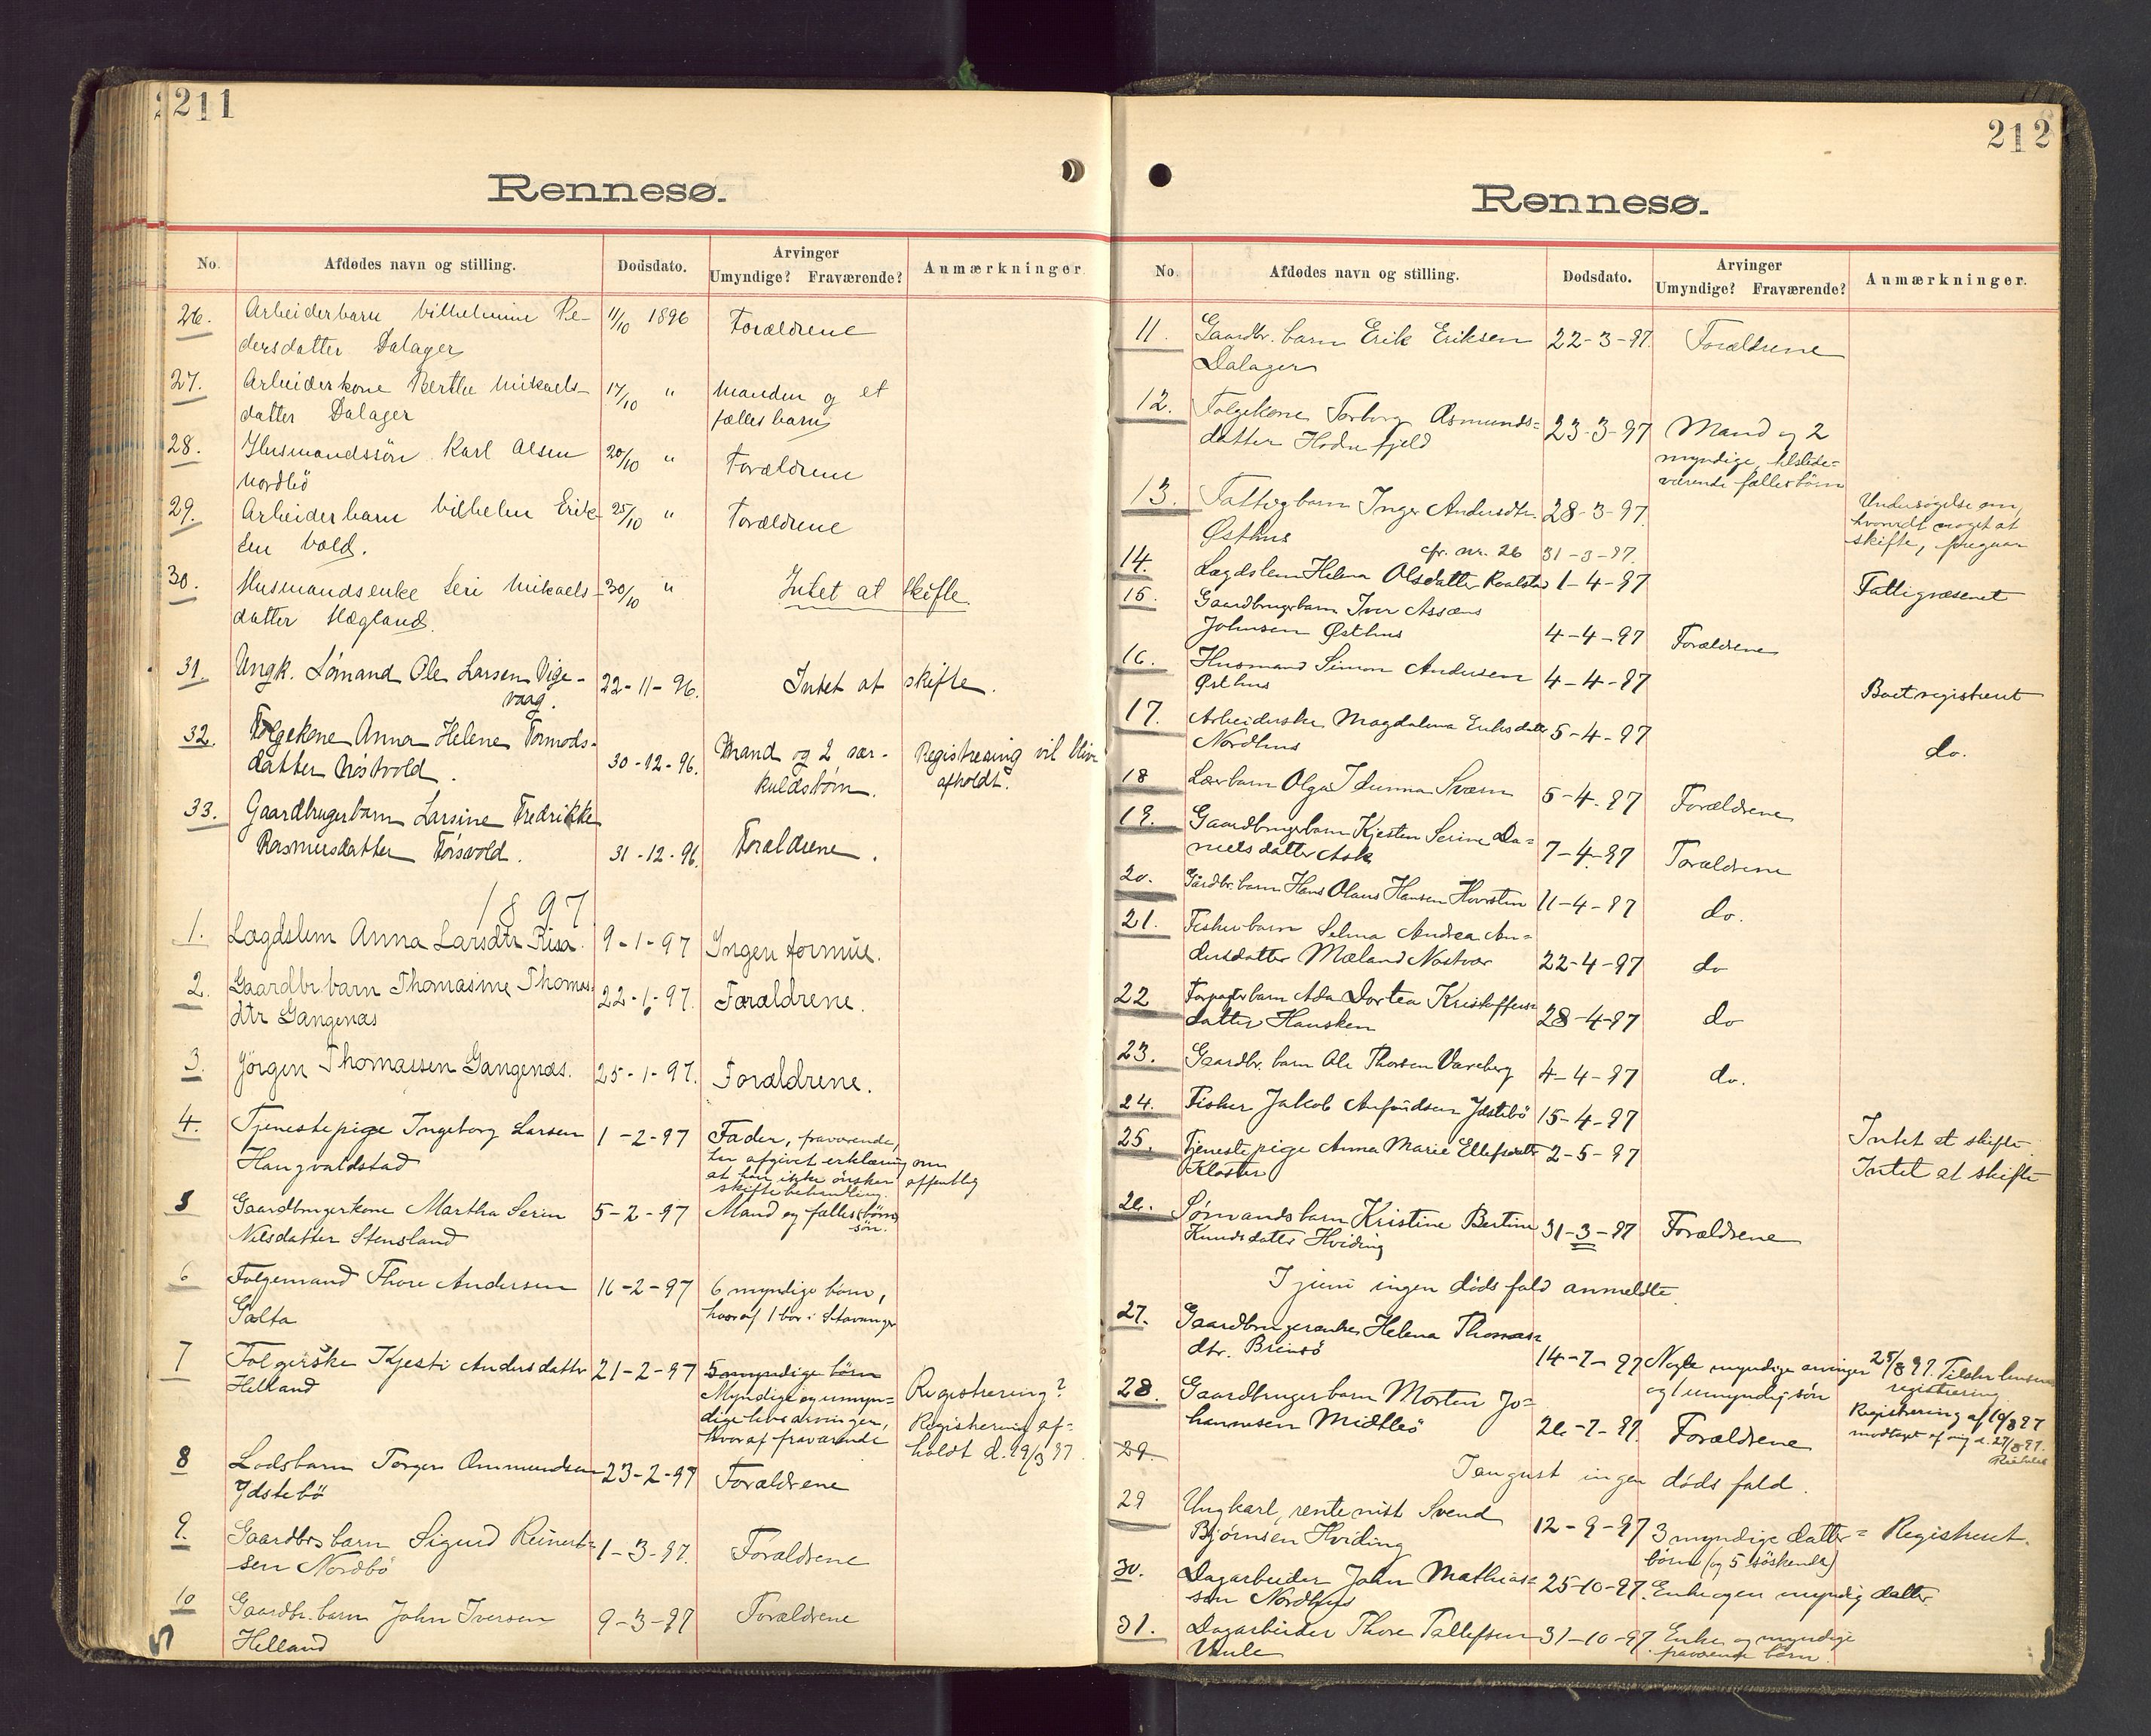 2211
Rennesø.
No. Afdødes navn og stilling. Dødsdato. Arvinger Umyndige? Fraværende? Anmærkninger
26. Arbeiderbarn Vilhelmine Pe- 11/10 1896 Forældrene
dersdatter Dalager
27. Arbeiderkone Berthe Mikaels- 17/10 " Manden og et
datter Dalager fælles barn
28. Husmandssön Karl Olsen 20/10 " Forældrene
Nordbö
29. Arbeiderbarn Vilhelm Erik- 25/10 " Forældrene
sen Vold.
30. Husmandsenke Seri Mikaels- 30/10 " Intet at skifte
datter Hægland.
31. Ungk. Sömand Ole Larsen Vige- 22-11-96. Intet at skifte.
vaag.
32. Folgekone Anna Helene Tormods- 30-12-96. Mand og 2 sær- Registrering vil blive
datter Nöstvold. kuldsbörn. afholdt.
33. Gaardbrugerbarn Larsine Fredrikke
Rasmusdatter Försvold. 31-12-96. Forældrene.
1897
1. Lægdslem Anna Larsdtr Risa. 9-1-97 Ingen formue.
2. Gaardbr barn Thomasine Thomas- 22-1-97. Forældrene.
dtr Gangenæs
3. Jörgen Thomassen Gangenæs. 25-1-97. Forældrene.
4. Tjenestepige Ingeborg Larsen 1-2-97 Fader, fraværende,
Haugvaldstad har afgivet erklæring om
at han ikke önsker offentlig
skiftebehandling.
5 Gaardbrugerkone Martha Serine 5-2-97 Mand og fælles börn
Nilsdatter Stensland sön.
6 Folgemand Thore Andersen 16-2-97 6 myndige börn,
Galta hvoraf 1 bor i Stavanger
7 Folgerske Kjesti Andersdatter 21-2-97 5 myndige börn
Helland Myndige og umyn- Registrering?
dige livsarvinger, Registrering af-
hvoraf fraværende holdt d. 19/3 97
8 Lodsbarn Torger Ommundsen 23-2-97 Forældrene
Ydstebö
9. Gaardbrs barn Sigurd Reinert- 1-3-97. Forældrene
sen Nordbö
10 Gaardbr. barn John Iversen 9-3-97 Forældrene
Helland
212
Rennesø.
No. Afdødes navn og stilling. Dødsdato. Arvinger Umyndige? Fraværende? Anmærkninger.
11. Gaardbr. barn Erik Eriksen 22-3-97. Forældrene
Dalager
12. Folgekone Torborg Asmunds= 23-3-97 Mand og 2
datter Hodnefjeld myndige, tilstede=
værende fællesbörn
13. Fattigbarn Inger Andersdtr. 28-3-97. Undersögelse om,
Østhus hvorvidt noget at
cfr. nr. 26 31-3-97. skifte, foregaar
14. Lægdslem Helena Olsdatter Roalstad 1-4-97 Fattigvæsenet
15. Gaardbrugerbarn Iver Assæus
Johnsen Østhus 4-4-97 Forældrene
16. Husmand Simon Andersen 4-4-97 Boet registreret
Østhus
17. Arbeiderske Magdalena Eriksdatter 5-4-97 do.
Nordhus
18 Lærerbarn Olga Idunna Sværn 5-4-97 Forældrene
19. Gaardbrugerbarn Kjesten Serine Da= 7-4-97 Forældrene
nielsdatter Ask
20. Gårdbr. barn Hans Olaus Hansen 11-4-97 do.
21. Fiskerbarn Selma Andrea An=
dersdatter Mæland Nastvær 22-4-97 do
22 Forpagterbarn Ada Dortea Kristoffers= 28-4-97 do
datter Hausken
23. Gaardbr. barn Ole Thorsen Vareberg 4-4-97 do.
24. Fisker Jakob Anfindsen Ydstebö 15-4-97 Intet at skifte
25. Tjenestepige Anna Marie Ellefsdatter 2-5-97 Intet at skifte
Kloster
26. Sømandsbarn Kristine Bertine 31-3-97 Forældrene
Knudsdatter Hviding
I juni ingen dödsfald anmeldte
27. Gaardbrugerenke Helena Thomas=
dtr. Brimsö 14-7-97 Nogle myndige arvinger 25/8 97. Tilskr. lensm.
og 1 umyndig sön registrering
28. Gaardbrugerbarn Morten Jo= Registrering af 10/8 97
hannesen Midtbö 26-7-97. Forældrene modtaget af mig d. 27/8 97.
29.
I august ingen dödsfald.
29 Ungkarl, rentenist Svend 12-9-97 3 myndige datter= Registreret.
Bjørnsen Hviding börn (og 5 söskende)
30. Dagarbeider John Mathias= 25-10-97. Enke og en myndig datter
sen Nordhus
31. Dagarbeider Thore Tallefsen 31-10-97. Enke og myndige
Vaule fraværende börn.